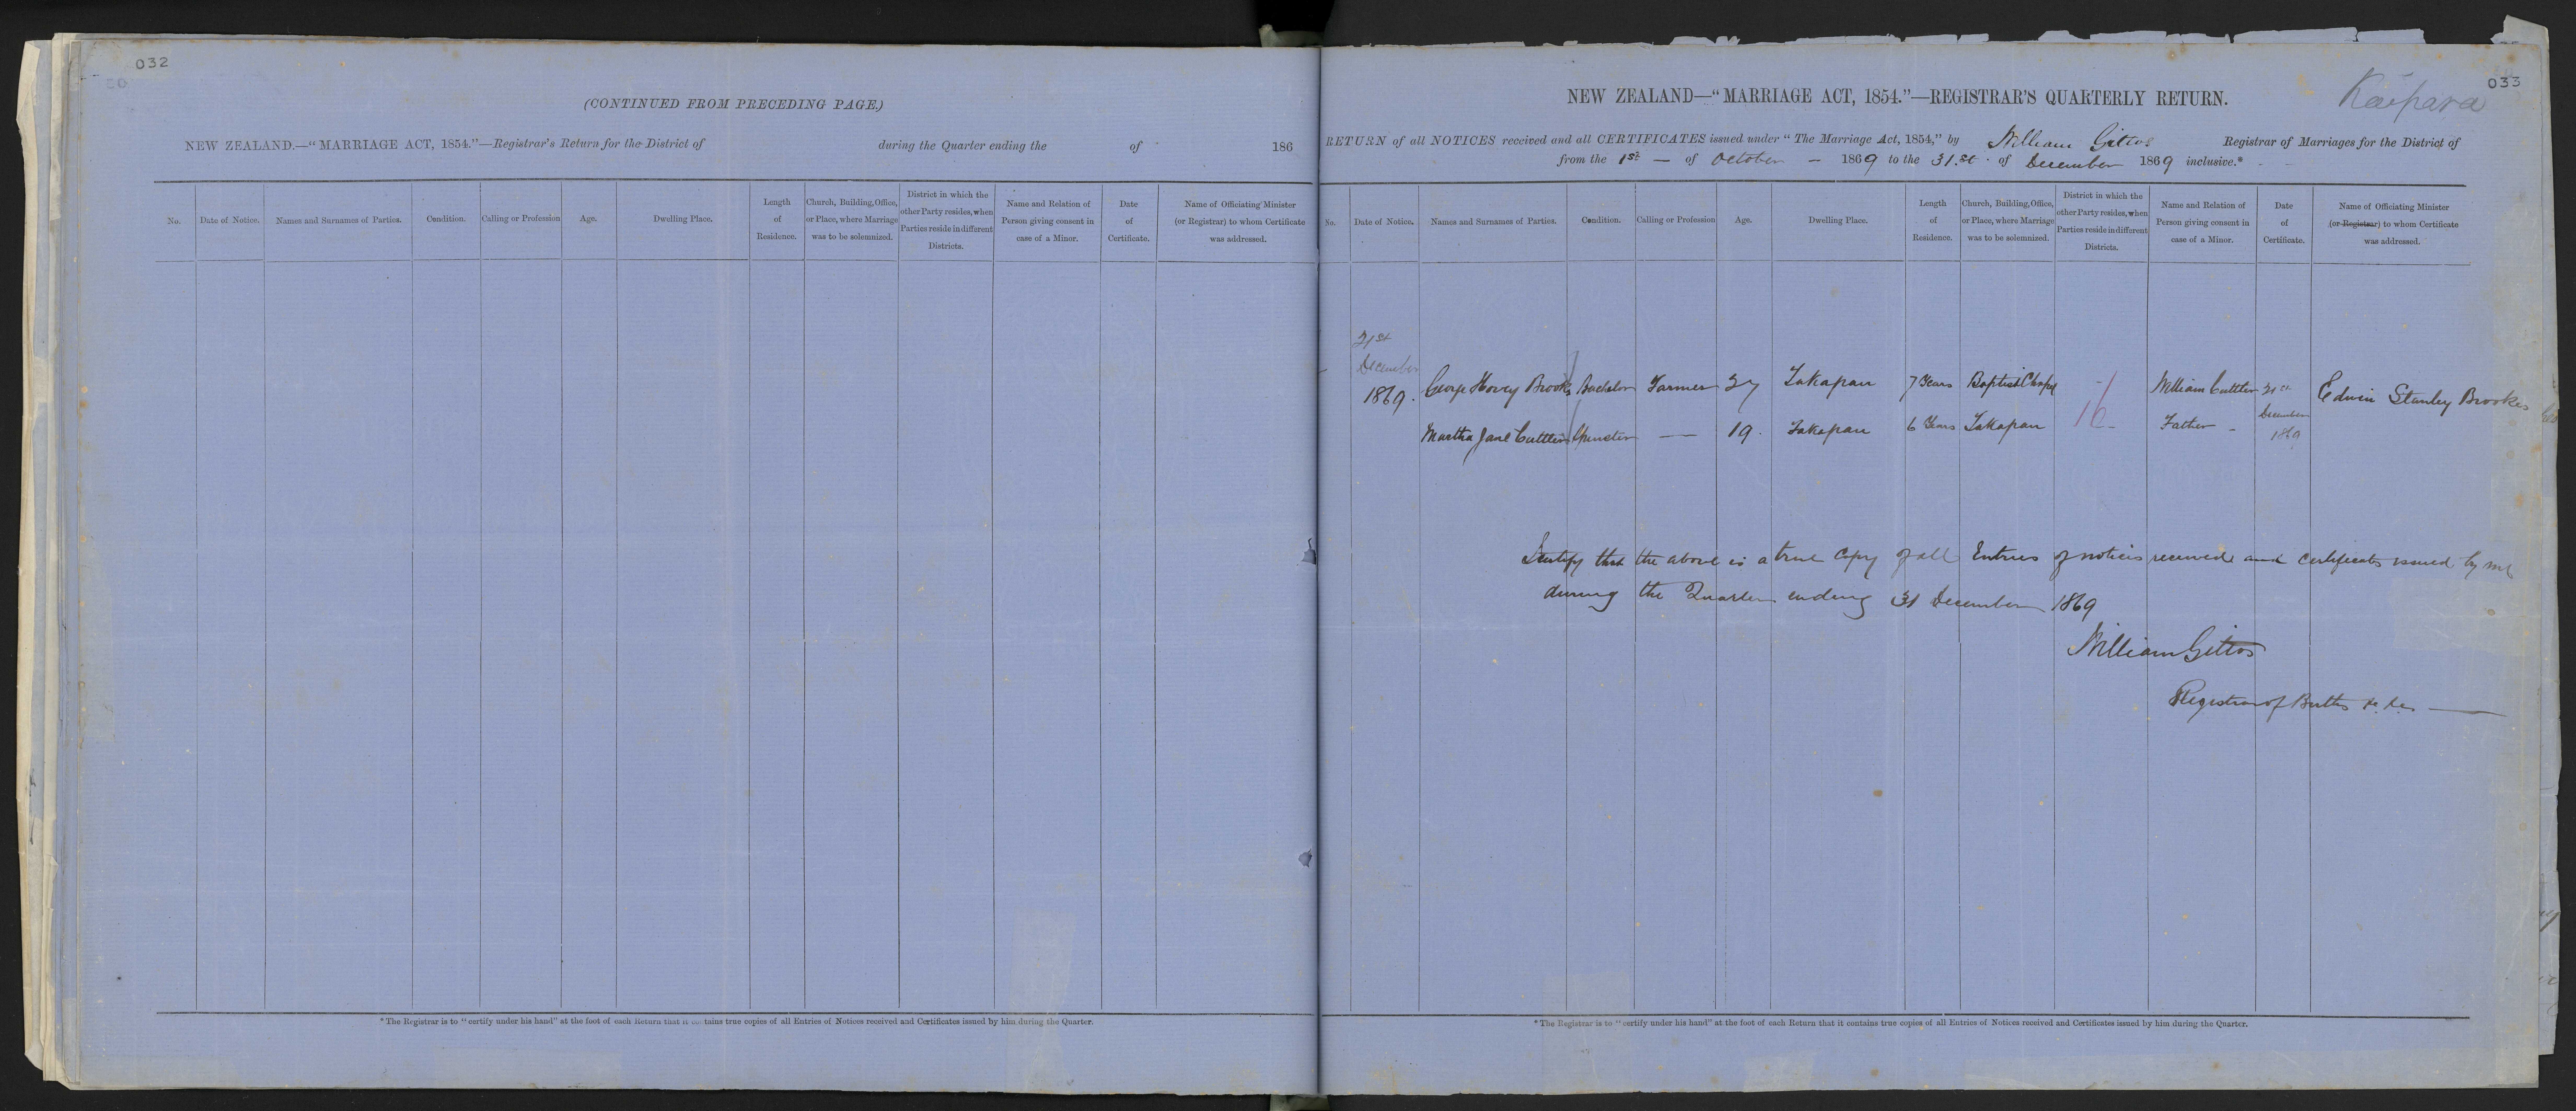 032
(CONTINUED FROM PRECEDING PAGE.)
NEW ZEALAND.—"MARRIAGE ACT, 1854."—Registrar's Return for the District of during the Quarter ending the of 186
No. Date of Notice. Names and Surnames of Parties. Condition. Calling or Profession Age. Dwelling Place. Length of Residence. Church, Building, Office, or Place, where Marriage was to be solemnized. District in which the other Party resides, when Parties reside in different Districts. Name and Relation of Person giving consent in case of a Minor. Date of Certificate. Name of Officiating Minister (or Registrar) to whom Certificate was addressed.
*The Registrar is to "certify under his hand" at the foot of each Return that it contains true copies of all Entries of Notices received and Certificates issued by him during the Quarter.
033
Kaipara
NEW ZEALAND—"MARRIAGE ACT, 1854."—REGISTRAR'S QUARTERLY RETURN.
RETURN of all NOTICES received and all CERTIFICATES issued under "The Marriage Act, 1854," by William Gittos Registrar of Marriages for the District of
from the 1st — of October – 1869 to the 31.st of December 1869 inclusive.*
No. Date of Notice. Names and Surnames of Parties. Condition. Calling or Profession Age. Dwelling Place. Length of Residence. Church, Building, Office, or Place, where Marriage was to be solemnized. District in which the other Party resides, when Parties reside in different Districts. Name and Relation of Person giving consent in case of a Minor. Date of Certificate. Name of Officiating Minister (or Registrar) to whom Certificate was addressed.
21st
December
1869. George Hovey Brookes Bachelor Farmer 27 Takapau 7 Years Baptist Chapel William Cuttlers 21st December 1869 Edwin Stanley Brookes
Martha Jane Cuttlers Spinster — 19. Takapau 6 Years Takapau 16 Father –
I certify that the above is a true copy of all Entries of notices received and certificates issued by me
during the Quarter ending 31 December 1869
William Gittos
Registrar of Births &c &c —
*The Registrar is to "certify under his hand" at the foot of each Return that it contains true copies of all Entries of Notices received and Certificates issued by him during the Quarter.